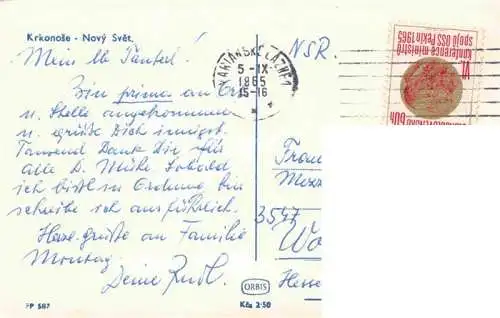 Krkonoše - Nový Svět.
Mein lb
Bin prima an Ort
u. Stelle angekommen
u. grüße Dich innigst.
Tausend Dank Dir für
alle D. Mühe. Sobald
ich bissl in Ordnung bin
schreibe ich ausführlich.
Herzl. Grüße an Familie
Montag
Deine Rudl.
FP 587
ORBIS
Kčs 2·50
MARIÁNSKÉ LÁZNĚ 1
5-IX
1965
15-16
NSR.
VI.
konference ministrů
spojů OSS Pekin 1965
60h
Frau
3547
Wo
Hesse